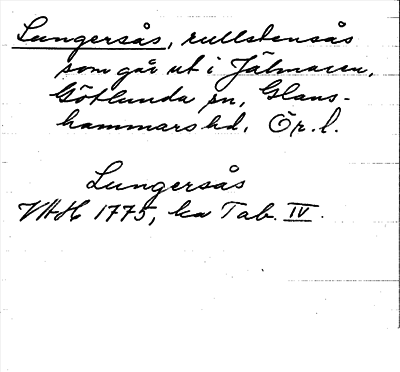 Lungersås, rullstensås
som går ut i Jälmaren,
Götlunda sn, Glans-
hammars hd, Ör. l.
Lungersås
VAH 1775, ka Tab. IV.